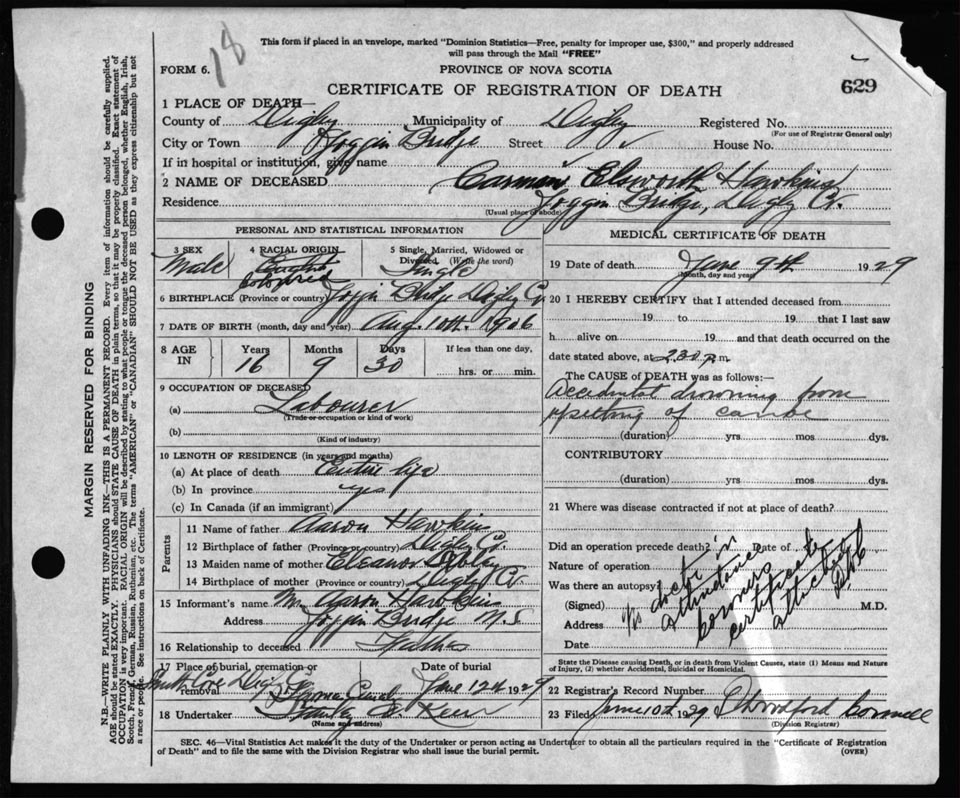 18
This form if placed in an envelope, marked "Dominion Statistics—Free, penalty for improper use, $300," and properly addressed
will pass through the Mail "FREE"
FORM 6.
PROVINCE OF NOVA SCOTIA
CERTIFICATE OF REGISTRATION OF DEATH
629
1 PLACE OF DEATH—
County of Digby Municipality of Digby Registered No.
(For use of Registrar General only)
City or Town Joggin Bridge Street House No.
If in hospital or institution, give name
2 NAME OF DECEASED Carman Elsworth Hawkins
Residence Joggin Bridge, Digby Co.
(Usual place of abode)
PERSONAL AND STATISTICAL INFORMATION
3 SEX Male
4 RACIAL ORIGIN English Coloured
5 Single, Married, Widowed or Divorced (Write the word) Single
6 BIRTHPLACE (Province or country) Joggin Bridge Digby Co.
7 DATE OF BIRTH (month, day and year) Aug. 10th. 1906
8 AGE IN Years 16 Months 9 Days 30 If less than one day, hrs. or min.
9 OCCUPATION OF DECEASED
(a) Labourer
(Trade or occupation or kind of work)
(b)
(Kind of industry)
10 LENGTH OF RESIDENCE (in years and months)
(a) At place of death Entire life
(b) In province yes
(c) In Canada (if an immigrant)
Parents
11 Name of father Aaron Hawkins
12 Birthplace of father (Province or country) Digby Co.
13 Maiden name of mother Eleanor
14 Birthplace of mother (Province or country) Digby Co.
15 Informant's name Mr. Aaron Hawkins
Address Joggin Bridge N.S.
16 Relationship to deceased Father
17 Place of burial, cremation or removal Smith Cove Digby Co.
Date of burial June 12th 1929
18 Undertaker Stanley
(Name and address)
MEDICAL CERTIFICATE OF DEATH
19 Date of death June 9th 1929
(Month, day and year)
20 I HEREBY CERTIFY that I attended deceased from
19 to 19 that I last saw
h alive on 19 and that death occurred on the
date stated above, at 2.30 p m
The CAUSE of DEATH was as follows:—
Accidental drowning from
upsetting of canoe
(duration) yrs. mos dys.
CONTRIBUTORY
(duration) yrs. mos dys.
21 Where was disease contracted if not at place of death?
Did an operation precede death? Date of
Nature of operation
Was there an autopsy?
(Signed) M.D.
Address
Date
No doctor in
attendance
coroners
certificate
attached
State the Disease causing Death, or in death from Violent Causes, state (1) Means and Nature
of Injury, (2) whether Accidental, Suicidal or Homicidal.
22 Registrar's Record Number
23 Filed June 10th 1929
(Division Registrar)
SEC. 46—Vital Statistics Act makes it the duty of the Undertaker or person acting as Undertaker to obtain all the particulars required in the "Certificate of Registration
of Death" and to file the same with the Division Registrar who shall issue the burial permit.
(OVER)
MARGIN RESERVED FOR BINDING
N.B.—WRITE PLAINLY WITH UNFADING INK—THIS IS A PERMANENT RECORD. Every item of information should be carefully supplied.
AGE should be stated EXACTLY. PHYSICIANS should STATE CAUSE OF DEATH in plain terms, so that it may be properly classified. Exact statement of
OCCUPATION is very important. RACIAL ORIGIN will be described by stating to what people or tongue the deceased person belonged, whether English, Irish,
Scotch, French, German, Russian, Ruthenian, etc. The terms "AMERICAN" or "CANADIAN" SHOULD NOT BE USED as they express citizenship but not
a race or people. See instructions on back of Certificate.